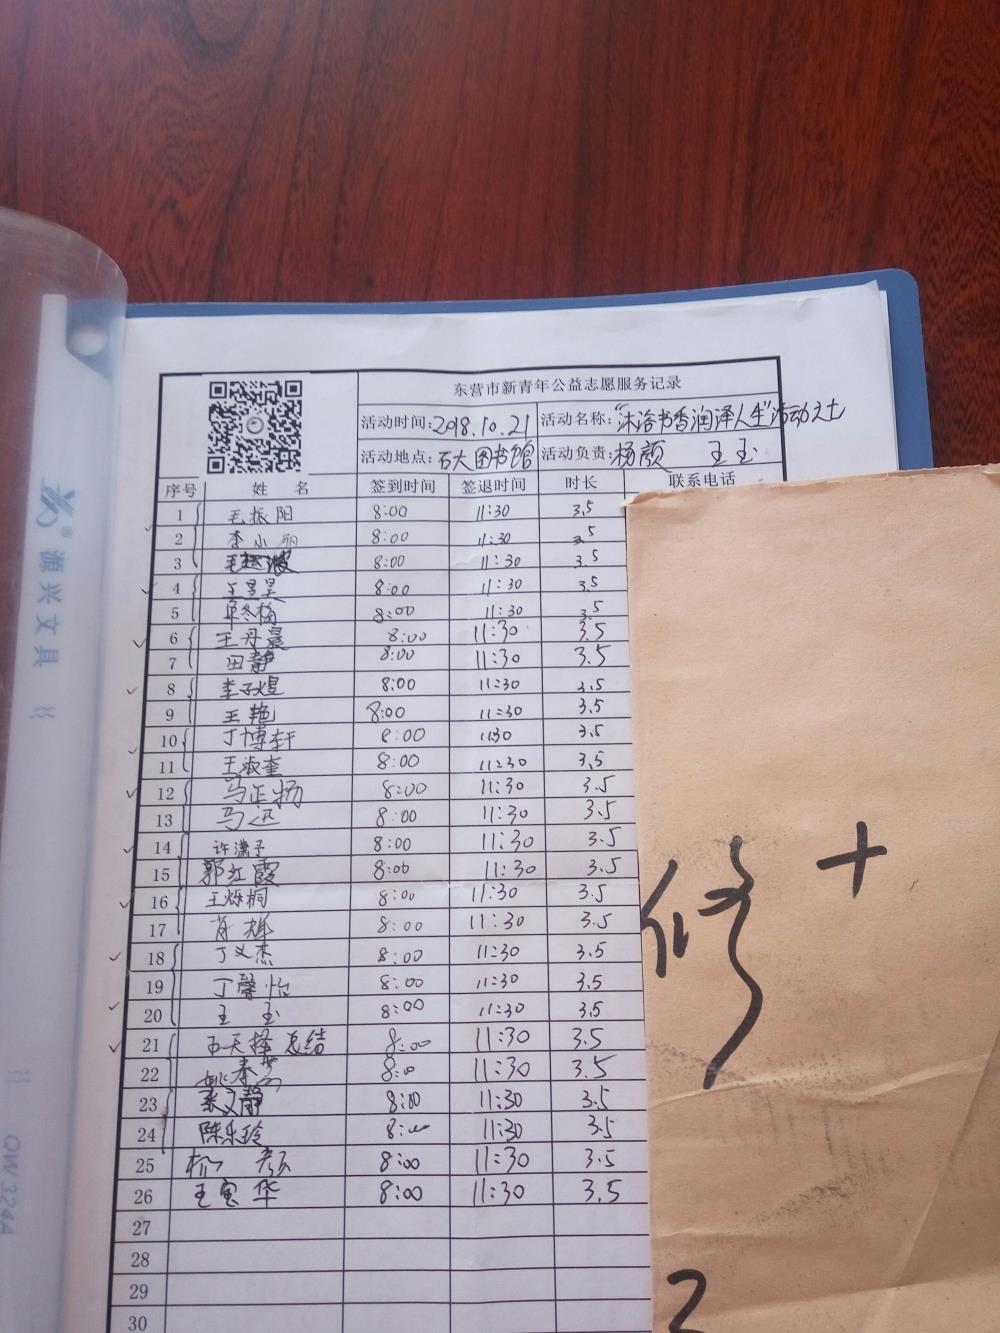 东营市新青年公益志愿服务记录
活动时间:2018.10.21 活动名称:"沐浴书香润泽人生"活动之七
活动地点:石大图书馆 活动负责:杨颜 王玉
序号 姓 名 签到时间 签退时间 时长 联系电话
1 毛振阳 8:00 11:30 3.5
2 李小丽 8:00 11:30 3.5
3 8:00 11:30 3.5
4 王昱昊 8:00 11:30 3.5
5 单冬梅 8:00 11:30 3.5
6 王丹晨 8:00 11:30 3.5
7 田静 8:00 11:30 3.5
8 李子煜 8:00 11:30 3.5
9 王艳 8:00 11:30 3.5
10 丁博轩 8:00 1130 3.5
11 王淑奎 8:00 11:30 3.5
12 马正扬 8:00 11:30 3.5
13 马迅 8:00 11:30 3.5
14 许潇予 8:00 11:30 3.5
15 郭红霞 8:00 11:30 3.5
16 王烁桐 8:00 11:30 3.5
17 肖雄 8:00 11:30 3.5
18 丁义杰 8:00 11:30 3.5
19 丁馨怡 8:00 11:30 3.5
20 王玉 8:00 11:30 3.5
21 天择 总结 8:00 11:30 3.5
22 姚春芳 8:00 11:30 3.5
23 8:00 11:30 3.5
24 陈乐玲 8:00 11:30 3.5
25 杨颜 8:00 11:30 3.5
26 王宝华 8:00 11:30 3.5
27
28
29
30
修+
2
振兴文具
QW324A